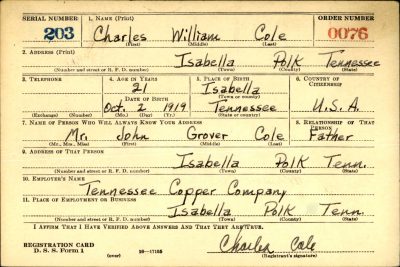 SERIAL NUMBER 1. NAME (Print) ORDER NUMBER
203 Charles William Cole 0076
(First) (Middle) (Last)
2. ADDRESS (Print)
Isabella Polk Tennessee
(Number and street or R. F. D. number) (Town) (County) (State)
3. TELEPHONE 4. AGE IN YEARS 5. PLACE OF BIRTH 6. COUNTRY OF CITIZENSHIP
21 Isabella
DATE OF BIRTH (Town or county)
Oct. 2 1919 Tennessee U.S.A.
(Exchange) (Number) (Mo.) (Day) (Yr.) (State or country)
7. NAME OF PERSON WHO WILL ALWAYS KNOW YOUR ADDRESS 8. RELATIONSHIP OF THAT PERSON
Mr. John Grover Cole Father
(Mr., Mrs., Miss) (First) (Middle) (Last)
9. ADDRESS OF THAT PERSON
Isabella Polk Tenn.
(Number and street or R. F. D. number) (Town) (County) (State)
10. EMPLOYER'S NAME
Tennessee Copper Company
11. PLACE OF EMPLOYMENT OR BUSINESS
Isabella Polk Tenn.
(Number and street or R. F. D. number) (Town) (County) (State)
I AFFIRM THAT I HAVE VERIFIED ABOVE ANSWERS AND THAT THEY ARE TRUE.
REGISTRATION CARD Charles Cole
D. S. S. Form 1 (over) 16-17105 (Registrant's signature)